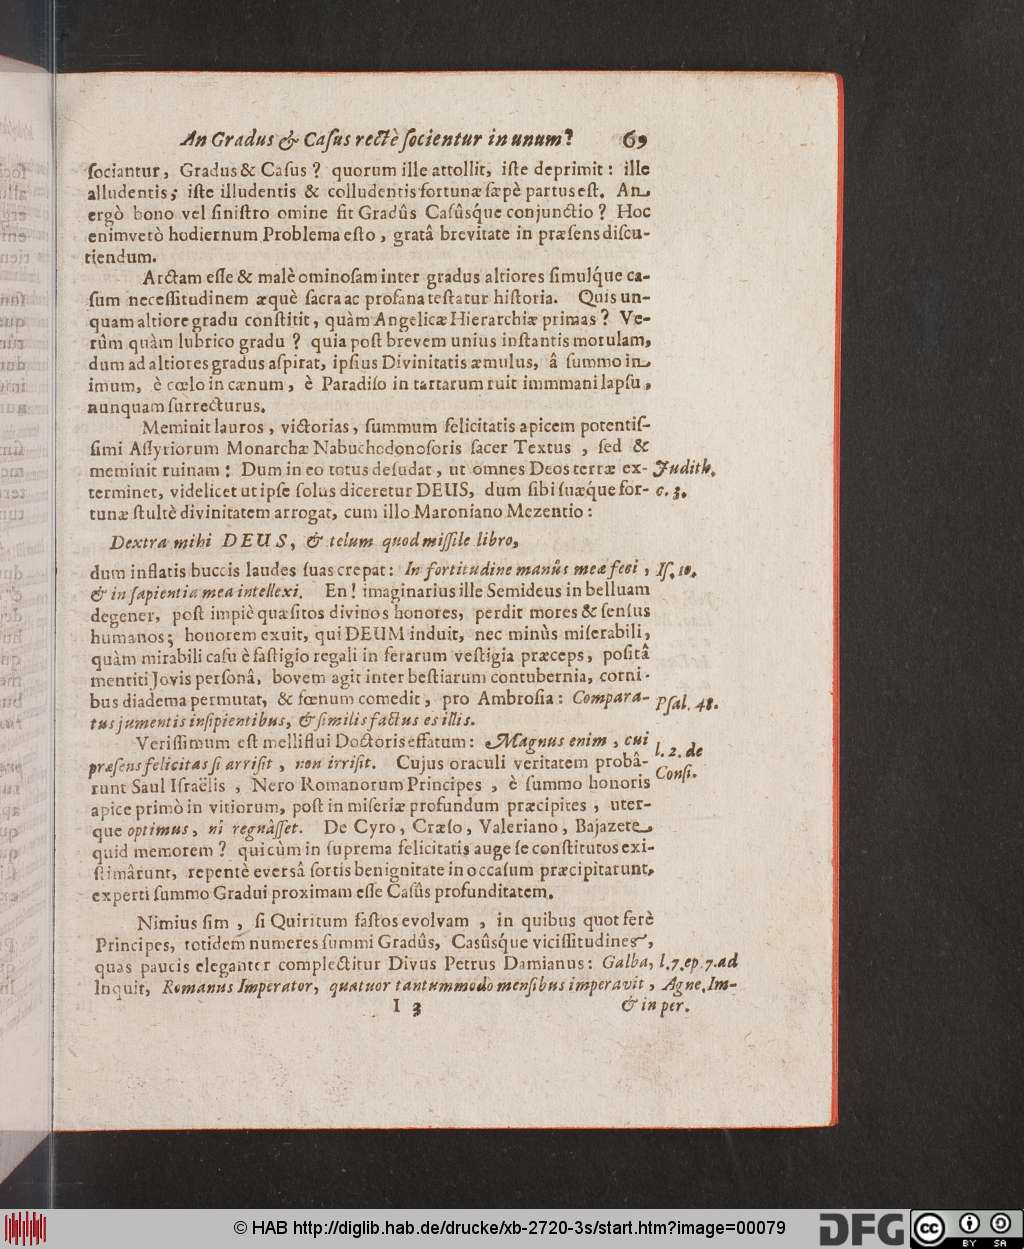 An Gradus & Caſus rectè ſocientur in unum? 69
ſociantur, Gradus & Caſus? quorum ille attollit, iſte deprimit: ille
alludentis; iſte illudentis & colludentis fortunæ ſæpè partus eſt. An
ergò bono vel ſiniſtro omine fit Gradûs Caſûsq́ue conjunctio? Hoc
enimverò hodiernum Problema eſto, gratâ brevitate in præſens diſcu-
tiendum.
Arctam eſſe & malè ominoſam inter gradus altiores ſimulq́ue ca-
ſum neceſſitudinem æquè ſacra ac profana teſtatur hiſtoria. Quis un-
quam altiore gradu conſtitit, quàm Angelicæ Hierarchiæ primas? Ve-
rûm quàm lubrico gradu? quia poſt brevem unius inſtantis morulam,
dum ad altiores gradus aſpirat, ipſius Divinitatis æmulus, â ſummo in
imum, è cœlo in cænum, è Paradiſo in tartarum ruit immmani lapſu,
nunquam ſurrecturus.
Meminit lauros, victorias, ſummum felicitatis apicem potentiſ-
ſimi Aſſyriorum Monarchæ Nabuchodonoſoris ſacer Textus, ſed &
meminit ruinam: Dum in eo totus deſudat, ut omnes Deos terræ ex- Judith.
terminet, videlicet ut ipſe ſolus diceretur DEUS, dum ſibi ſuæque for- c. 3.
tunæ ſtultè divinitatem arrogat, cum illo Maroniano Mezentio:
Dextra mihi DEUS, & telum quod miſſile libro,
dum inflatis buccis laudes ſuas crepat: In fortitudine manûs meæ feci, Iſ. 10.
& in ſapientia mea intellexi. En! imaginarius ille Semideus in belluam
degener, poſt impiè quæſitos divinos honores, perdit mores & ſenſus
humanos; honorem exuit, qui DEUM induit, nec minùs miſerabili,
quàm mirabili caſu è faſtigio regali in ferarum veſtigia præceps, poſitâ
mentiti Jovis perſonâ, bovem agit inter beſtiarum contubernia, corni-
bus diadema permutat, & fœnum comedit, pro Ambroſia: Compara- Pſal. 48.
tus jumentis inſipientibus, & ſimilis factus es illis.
Veriſſimum eſt melliflui Doctoris effatum: Magnus enim, cui l. 2. de
præſens felicitas ſi arriſit, non irriſit. Cujus oraculi veritatem probâ- Conſi.
runt Saul Iſraëlis, Nero Romanorum Principes, è ſummo honoris
apice primò in vitiorum, poſt in miſeriæ profundum præcipites, uter-
que optimus, ni regnâſſet. De Cyro, Cræſo, Valeriano, Bajazete
quid memorem? qui cùm in ſuprema felicitatis auge ſe conſtitutos exi-
ſtimârunt, repentè everſâ ſortis benignitate in occaſum præcipitarunt,
experti ſummo Gradui proximam eſſe Caſûs profunditatem.
Nimius ſim, ſi Quiritum faſtos evolvam, in quibus quot ferè
Principes, totidem numeres ſummi Gradûs, Casûsq́ue viciſſitudines,
quas paucis eleganter complectitur Divus Petrus Damianus: Galba, l. 7. ep. 7. ad
Inquit, Romanus Imperator, quatuor tantummodo menſibus imperavit, Agne. Im-
I 3 & in per.
© HAB http://diglib.hab.de/drucke/xb-2720-3s/start.htm?image=00079
DFG
cc BY SA